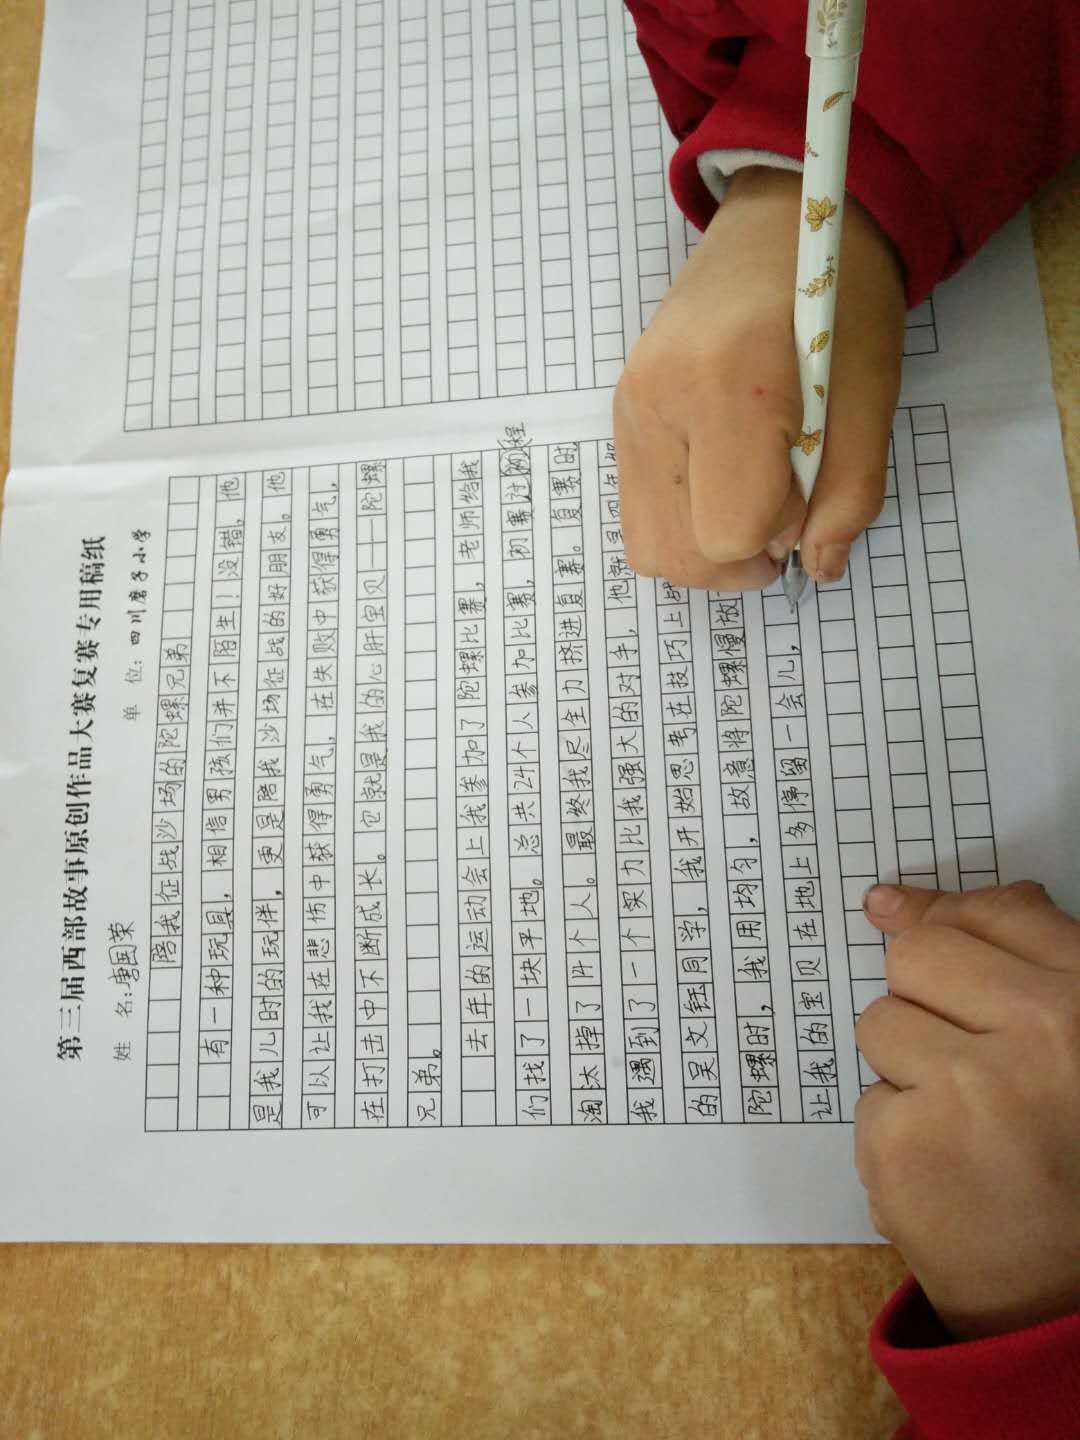 第三届西部故事原创作品大赛复赛专用稿纸
姓 名:唐国荣 单 位:四川磨子小学
陪我征战沙场的陀螺兄弟
有一种玩具，相信男孩们并不陌生！没错，他
是我儿时的玩伴，更是陪我沙场征战的好朋友。他
可以让我在悲伤中获得勇气，在失败中获得勇气，
在打击中不断成长。它就是我的心肝宝贝——陀螺
兄弟。
去年的运动会上我参加了陀螺比赛，老师给我
们找了一块平地。总共24个人参加比赛，初赛过程
淘汰掉了14个人。最终我尽全力挤进复赛。复赛时
我遇到了一个实力比我强大的对手，他就是四年级
的吴文钰同学，我开始思考在技巧上战
陀螺时，我用均匀，故意将陀螺慢放
让我的宝贝在地上多停留一会儿，